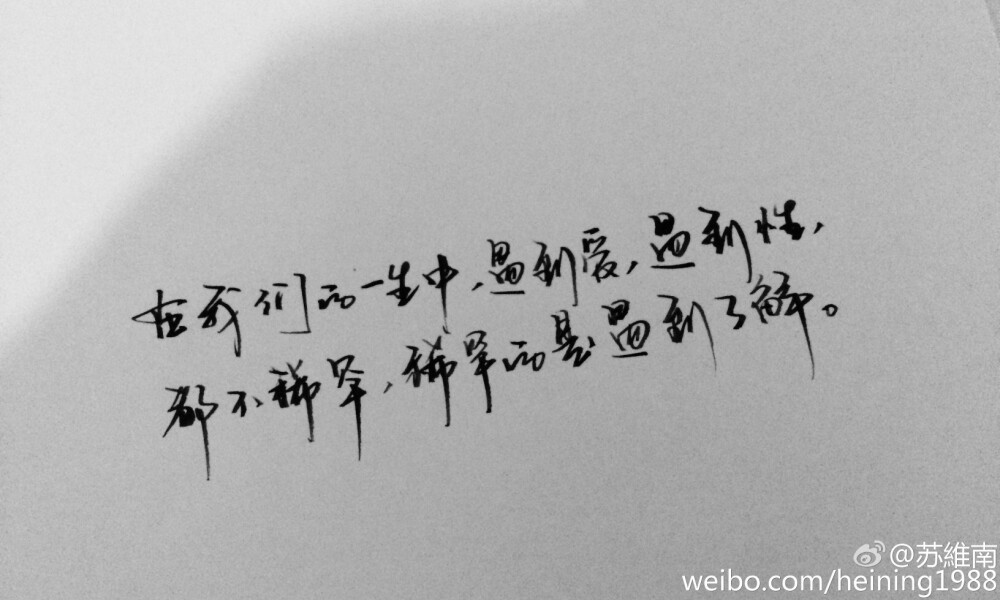 在我们的一生中，遇到爱，遇到性，
都不稀罕，稀罕的是遇到了解。
@苏維南
weibo.com/heining1988